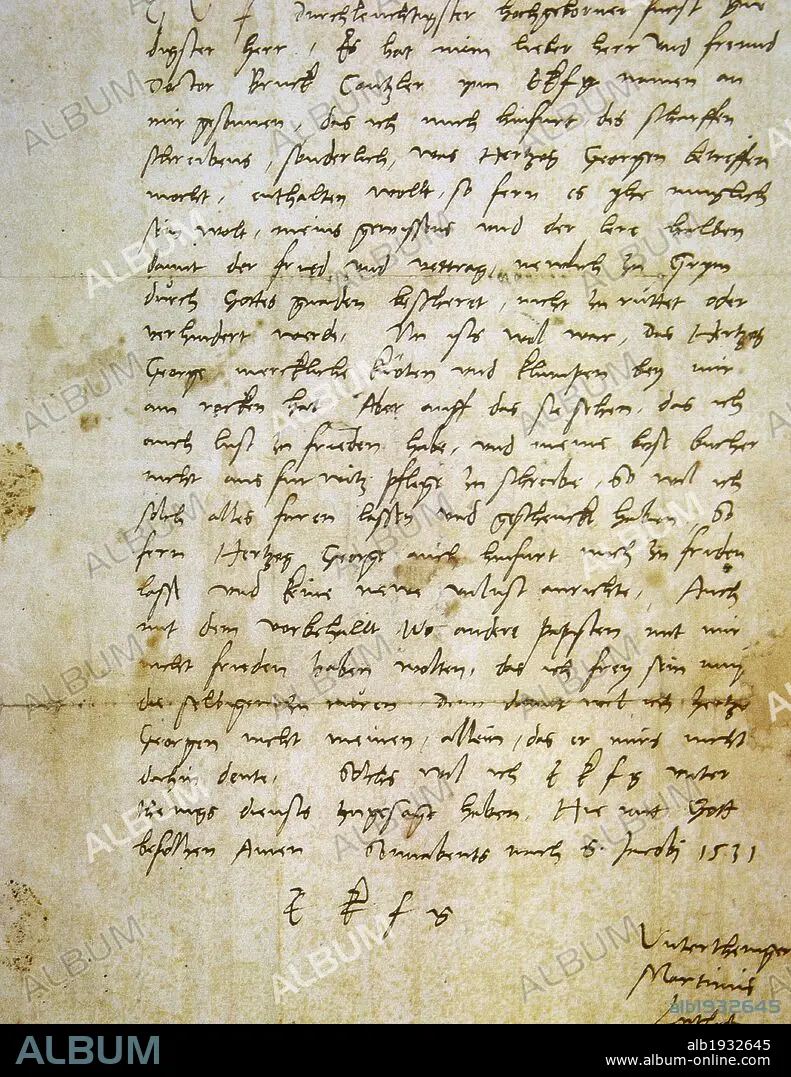 Durchleuchtigster hochgeborner furst
digster herr, Es hat mein lieber herr und freund
Doctor Bruck Cantzler ynn E k f g namen an
mir gesonnen, das ich mich hinfurt des scharffen
schreibens, sonderlich, was Hertzog Georgen betreffen
mocht, enthalten wollt, so fern es yhe muglich
sein wolt, meins gewissens und der lere halben
damit der fried und vertrag, newlich zu Grym
durch Gottes gnaden bescheret, nicht zu ruttet oder
verhindert werde. Nu ists wol war, das Hertzog
George merckliche knoten und klumpen bey mir
am rocken hat Aber auff das sie sehen, das ich
auch lust zu frieden habe, und meine bose bucher
nicht aus furwitz pflege zu schreibe, So wil ich
solch alles faren lassen und geschenckt haben, So
fern Hertzog George mich hinfurt auch zu frieden
lasse und keine newe unlust anrichte, Auch
mit dem vorbehallt Wo andere Papisten mit mir
nicht frieden haben wolten, das ich frey sein mug
die selbigen zu ruren denn damit wil ich Hertzog
Georgen nicht meinen, allein, das er mirs nicht
dahin deute. Solchs wil ich E k f g unter
thenigs diensts zugesagt haben, Hie mit Gott
befolhen Amen Sonnabents nach S. Jacobi 1531
E k f g
Untertheniger
Martinus
Luther
ALBUM
alb1932645
ALBUM
alb1932645
www.album-online.com